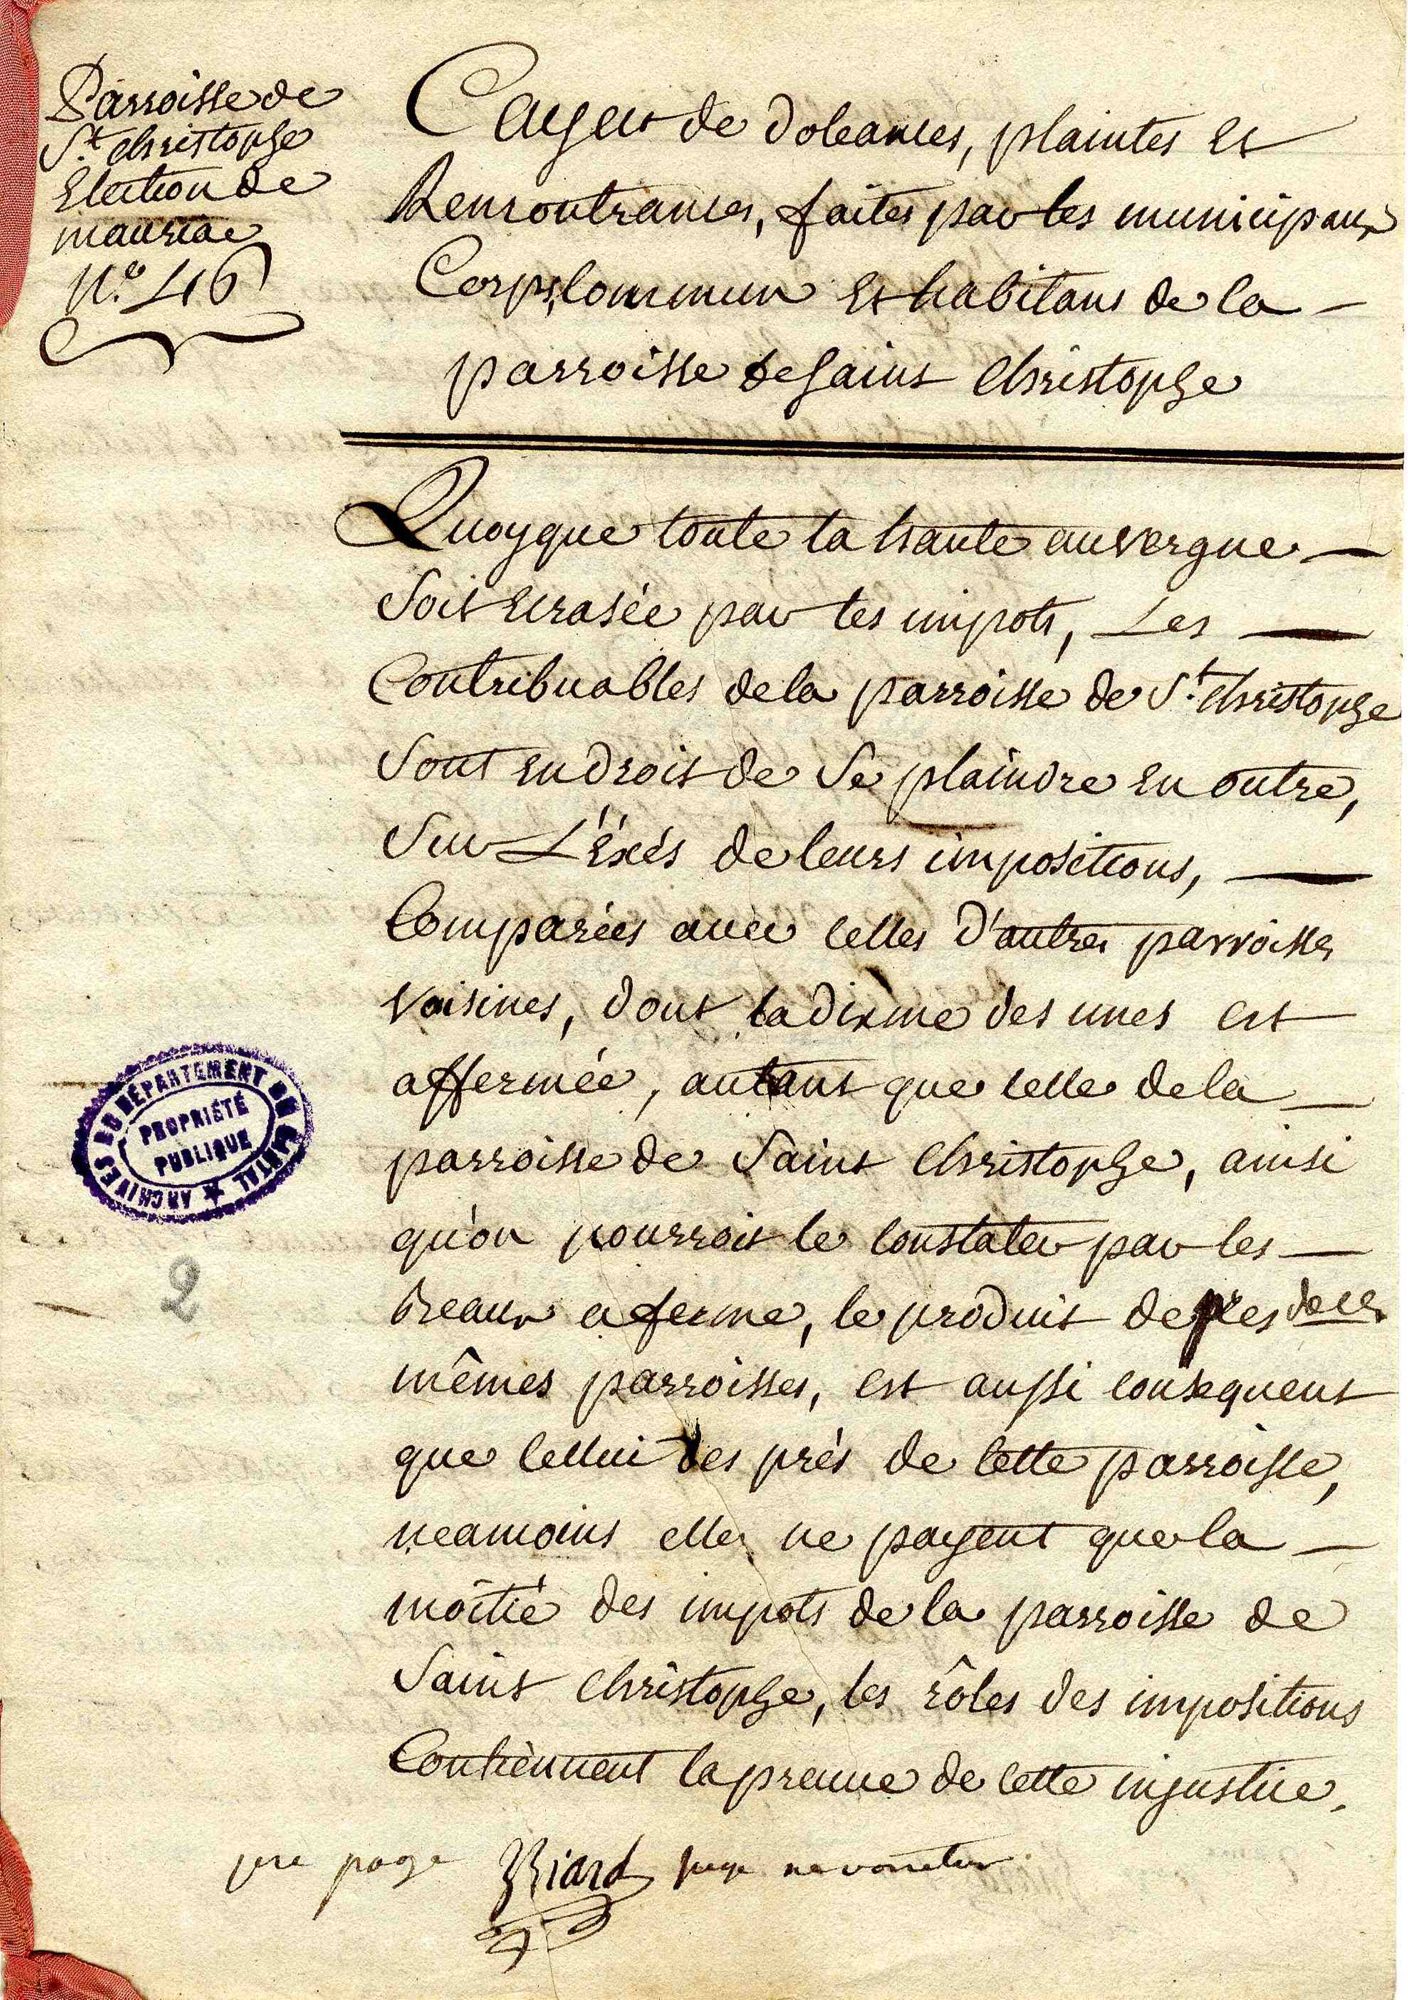 Parroisse de
St. christophe
Election de
mauriac
No. 46
Cayer de doleances, plaintes et
Remontrances, faites par les municipaux
Corps, commun et habitans de la
parroisse de saint christophe
Quoyque toute la haute auvergne
soit ecrasée par les impots, Les
Contribuables de la parroisse de St. christophe
sont en droit de se plaindre en outre,
sur L'éxés de leurs impositions,
Comparées avec celles d'autres parroisses
voisines, dont la dixme des unes est
affermée, autant que celle de la
parroisse de saint christophe, ainsi
qu'on pourroit le constater par les
Beaux a ferme, le produit des prés de ces
mêmes parroisses, est aussi consequent
que cellui des prés de cette parroisse,
neamoins elles ne payent que la
moîtié des impots de la parroisse de
saint christophe, les rôles des impositions
Contiènnent la preuve de cette injustice.
1ere page Riard juge
ARCHIVES DU DÉPARTEMENT DU CANTAL
PROPRIÉTÉ
PUBLIQUE
2